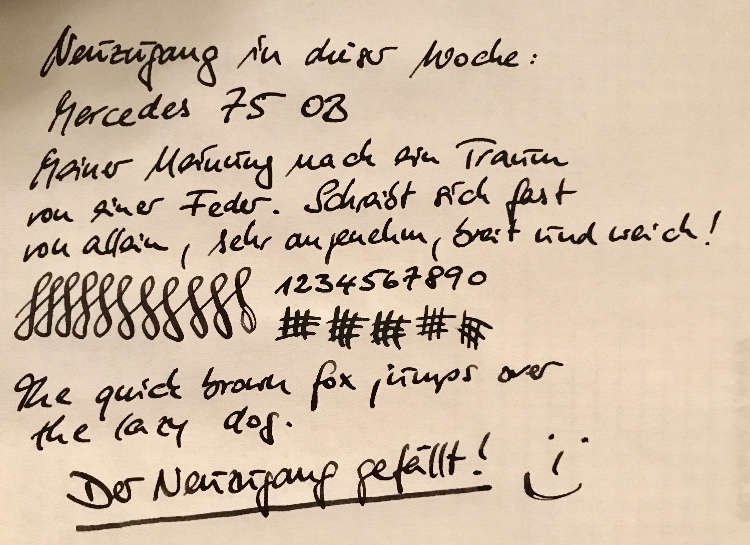 Neuzugang in dieser Woche:
Mercedes 75 OB
Meiner Meinung nach ein Traum
von einer Feder. Schreibt sich fast
von allein, sehr angenehm, breit und weich!
1234567890
The quick brown fox jumps over
the lazy dog.
Der Neuzugang gefällt!